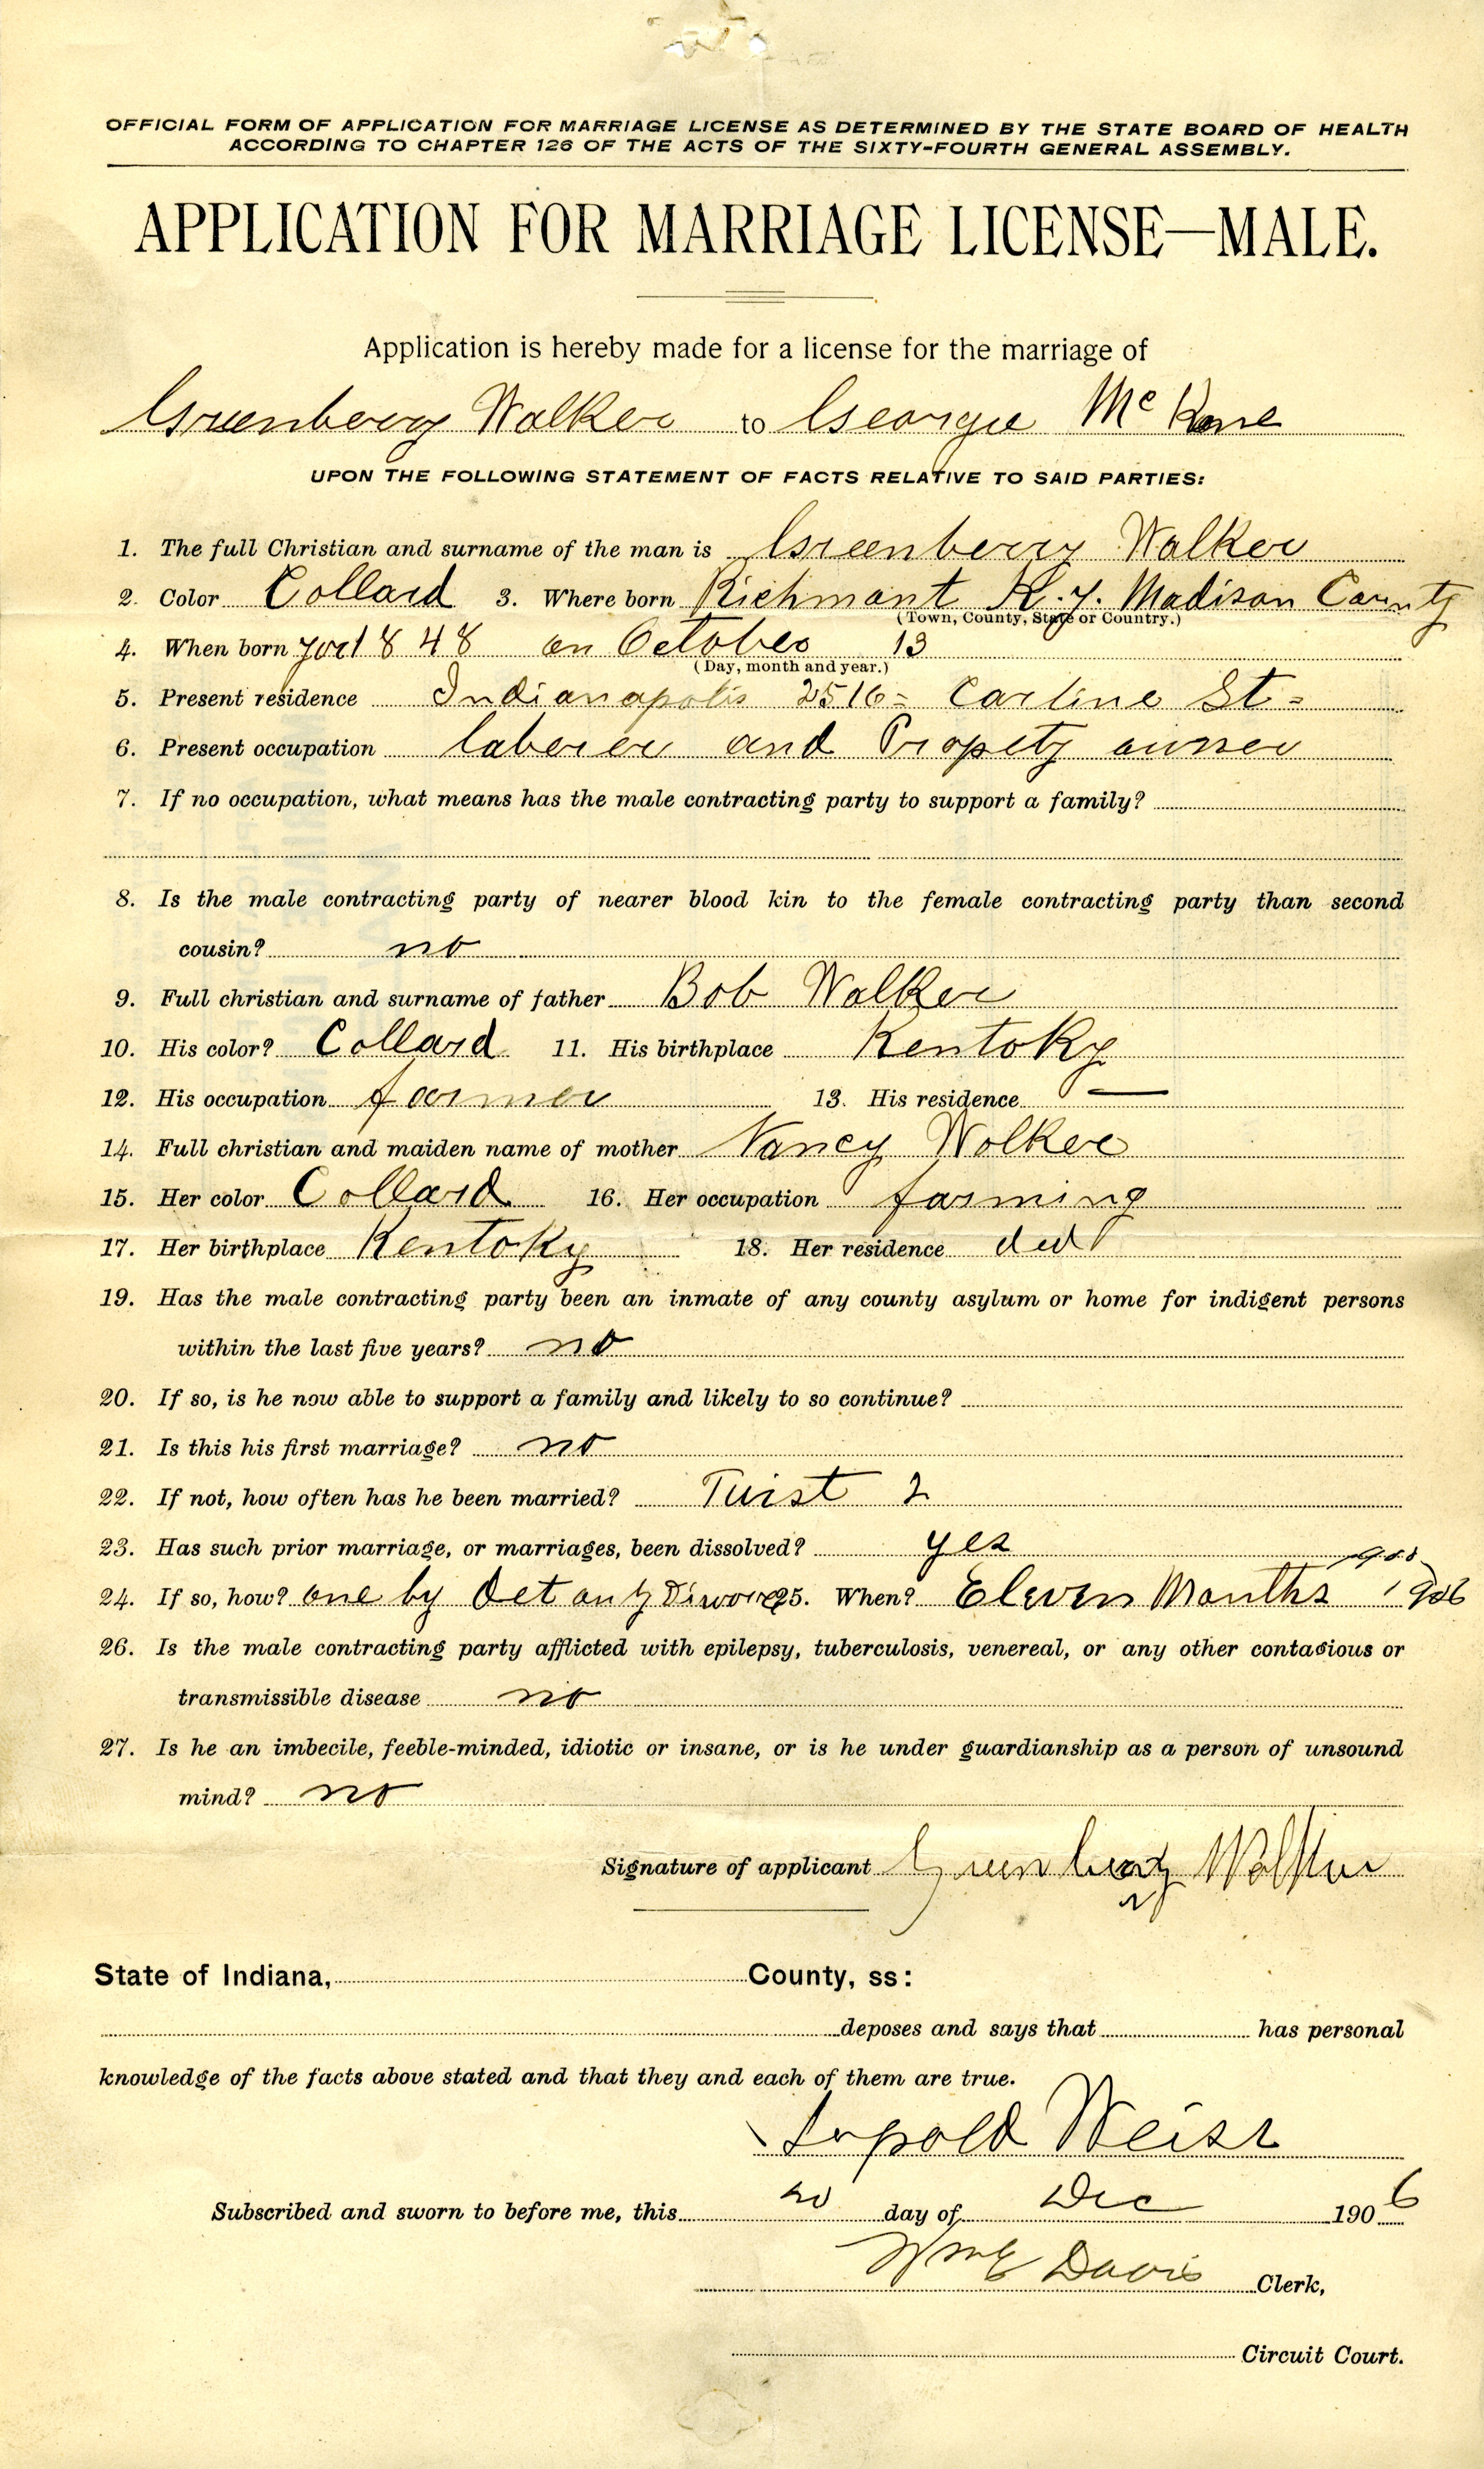 OFFICIAL FORM OF APPLICATION FOR MARRIAGE LICENSE AS DETERMINED BY THE STATE BOARD OF HEALTH
ACCORDING TO CHAPTER 126 OF THE ACTS OF THE SIXTY-FOURTH GENERAL ASSEMBLY.
APPLICATION FOR MARRIAGE LICENSE—MALE.
Application is hereby made for a license for the marriage of
Greenberry Walker to Georgie Mc
UPON THE FOLLOWING STATEMENT OF FACTS RELATIVE TO SAID PARTIES:
1. The full Christian and surname of the man is Greenberry Walker
2. Color Collard 3. Where born Richmant K.y. Madison County
(Town, County, State or Country.)
4. When born 1848 on October 13
(Day, month and year.)
5. Present residence Indianapolis 2516 = Carline St =
6. Present occupation laborer and Propety owner
7. If no occupation, what means has the male contracting party to support a family?
8. Is the male contracting party of nearer blood kin to the female contracting party than second
cousin? no
9. Full christian and surname of father Bob Walker
10. His color? Collard 11. His birthplace Kentoky
12. His occupation farmer 13. His residence —
14. Full christian and maiden name of mother Nancy Walker
15. Her color Collard 16. Her occupation farming
17. Her birthplace Kentoky 18. Her residence ded
19. Has the male contracting party been an inmate of any county asylum or home for indigent persons
within the last five years? no
20. If so, is he now able to support a family and likely to so continue?
21. Is this his first marriage? no
22. If not, how often has he been married? Twist 2
23. Has such prior marriage, or marriages, been dissolved? yes
24. If so, how? one by Det on by Divorce 25. When? Eleven Months 1906
26. Is the male contracting party afflicted with epilepsy, tuberculosis, venereal, or any other contagious or
transmissible disease no
27. Is he an imbecile, feeble-minded, idiotic or insane, or is he under guardianship as a person of unsound
mind? no
Signature of applicant Greenberry Walker
State of Indiana, County, ss:
deposes and says that has personal
knowledge of the facts above stated and that they and each of them are true.
Lepold Weiss
Subscribed and sworn to before me, this 20 day of Dec 1906
Wm E Davis Clerk,
Circuit Court.